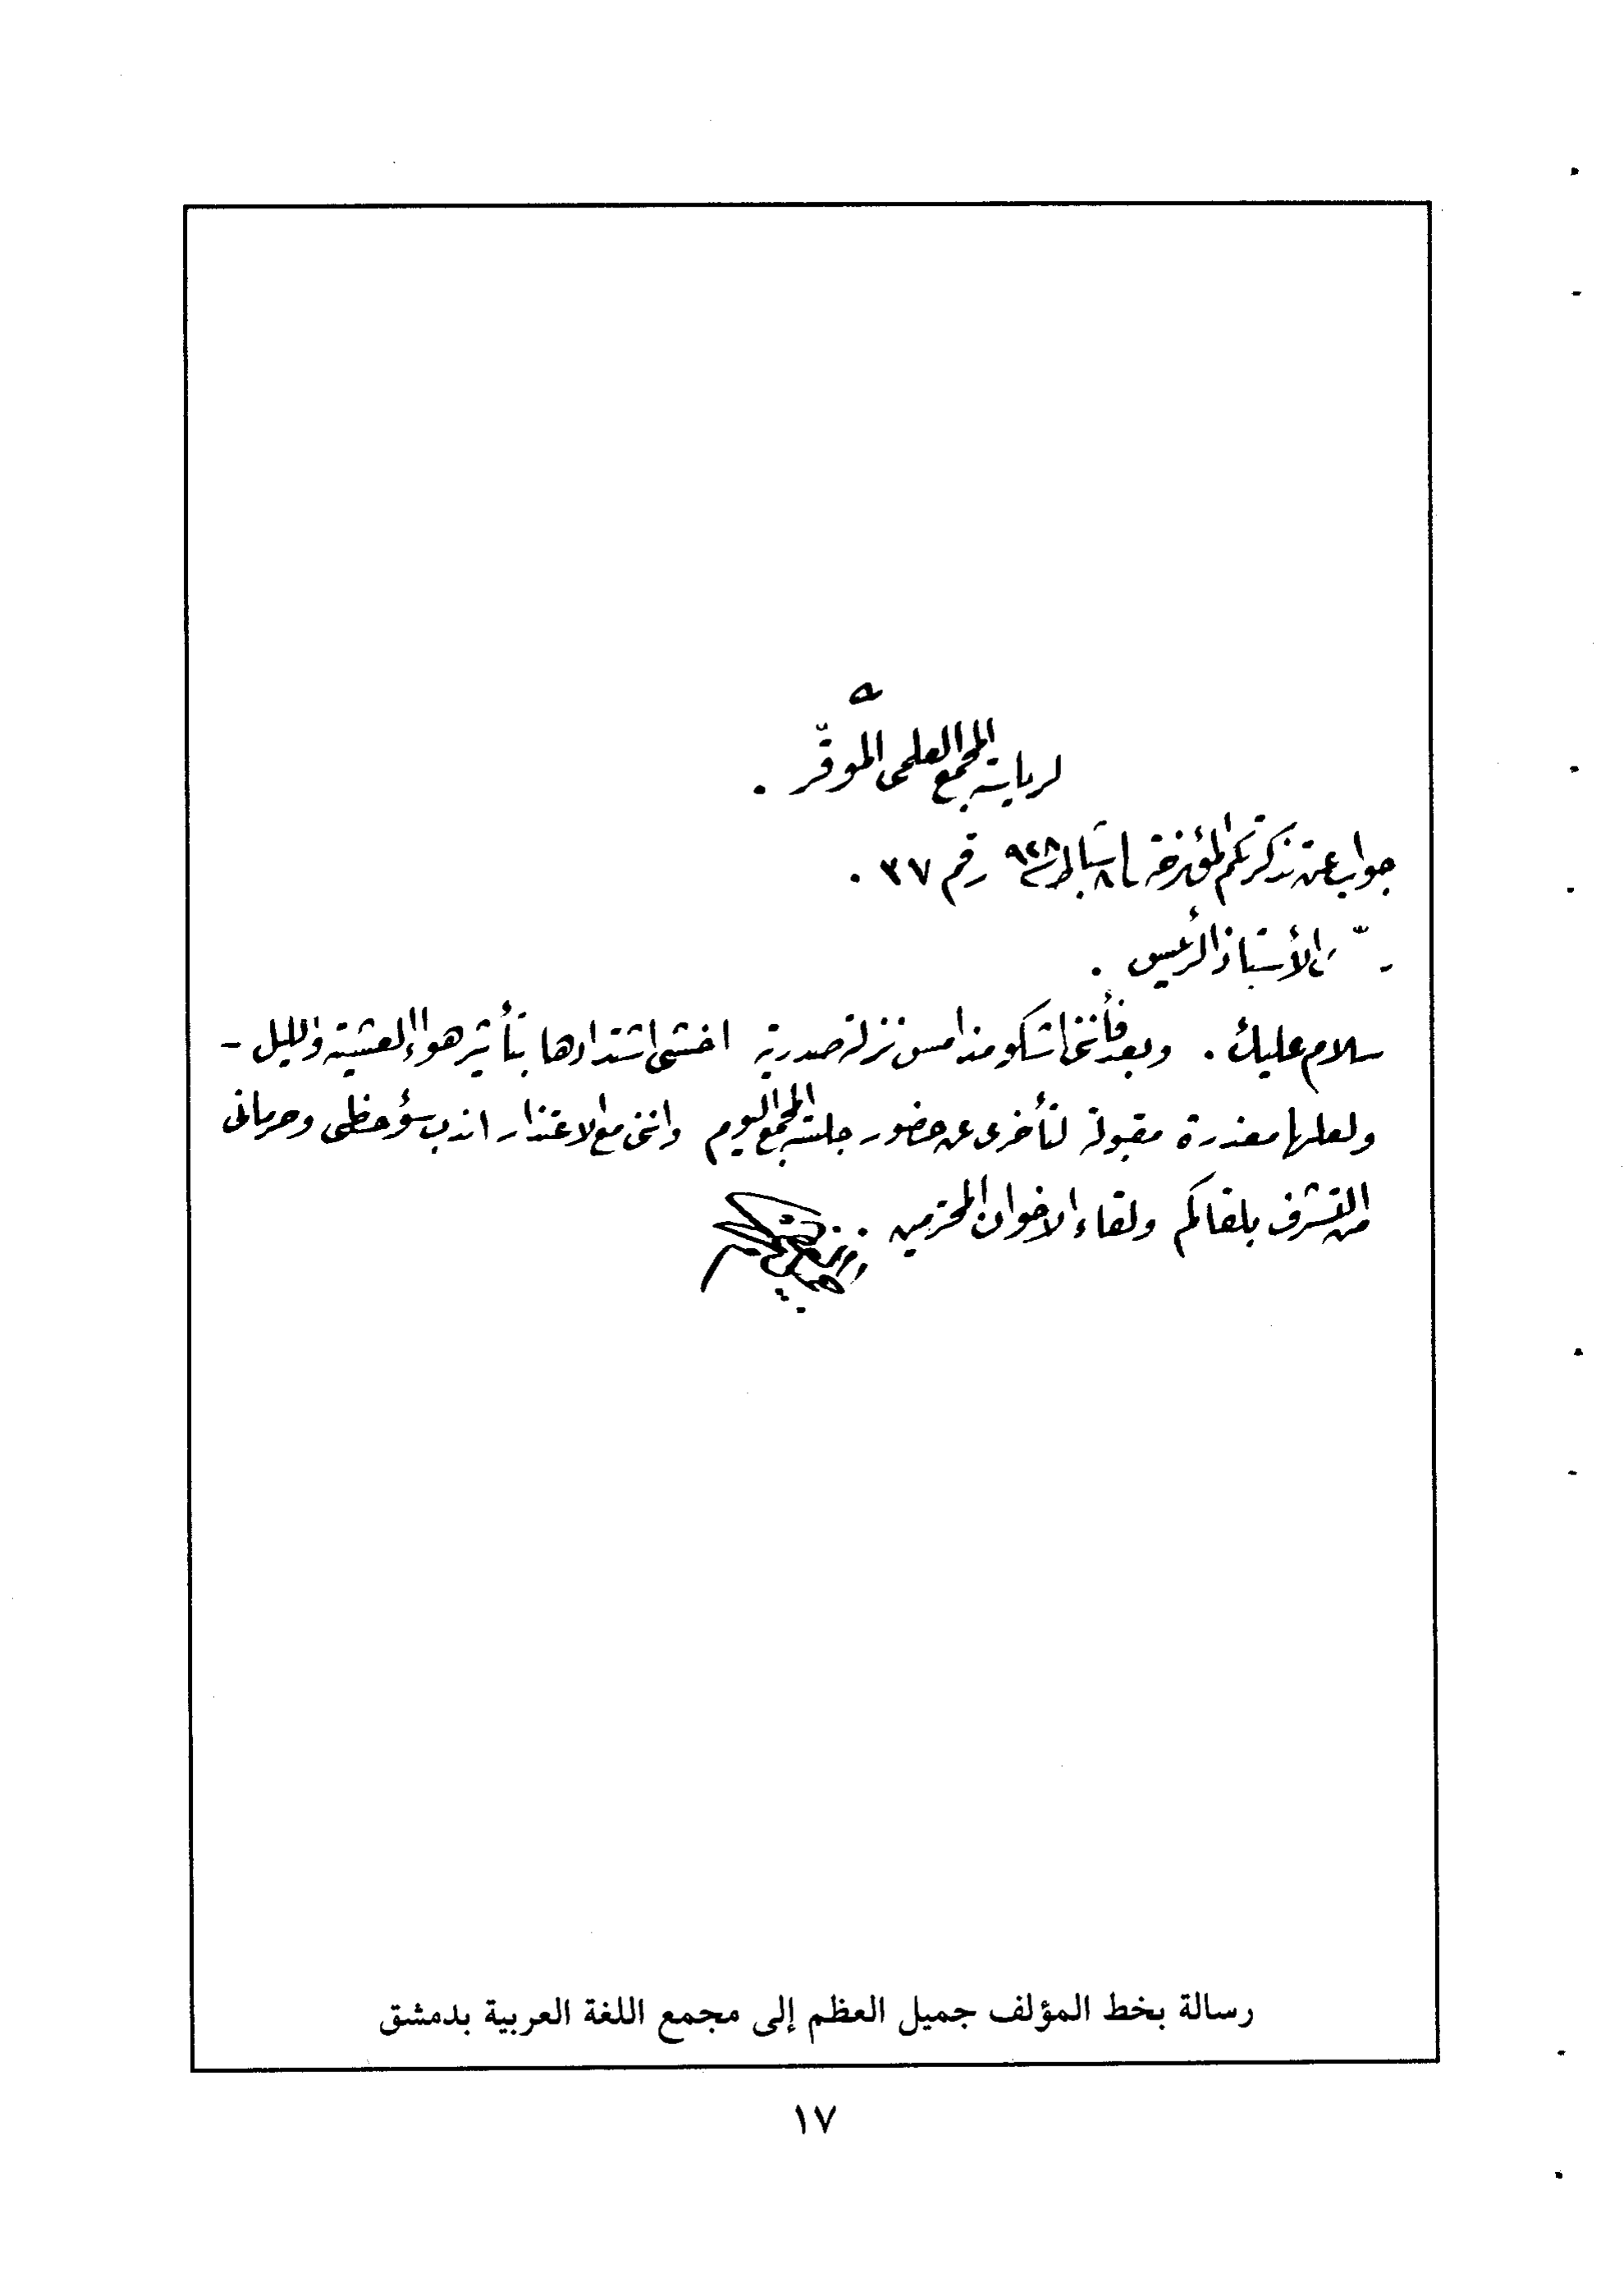 لرياسة المجمع العلمي الموقّر .
جواب عن تذكرتكم المؤرخة ٨ شباط سنة ٩٢٨ رقم ٣٧ .
الأستاذ الرئيس .
سلام عليك . وبعد فأنني اشكو منذ امس نزلة صدرية اخشى اشتدادها بتأثير هواء العشية والليل -
ولعلها معذرة مقبولة لتأخري عن حضور جلسة المجمع اليوم وانني مع الاعتذار اندب سؤ حظي وحرماني
من التشرف بلقاكم ولقاء الاخوان المحترمين .
رسالة بخط المؤلف جميل العظم إلى مجمع اللغة العربية بدمشق
١٧